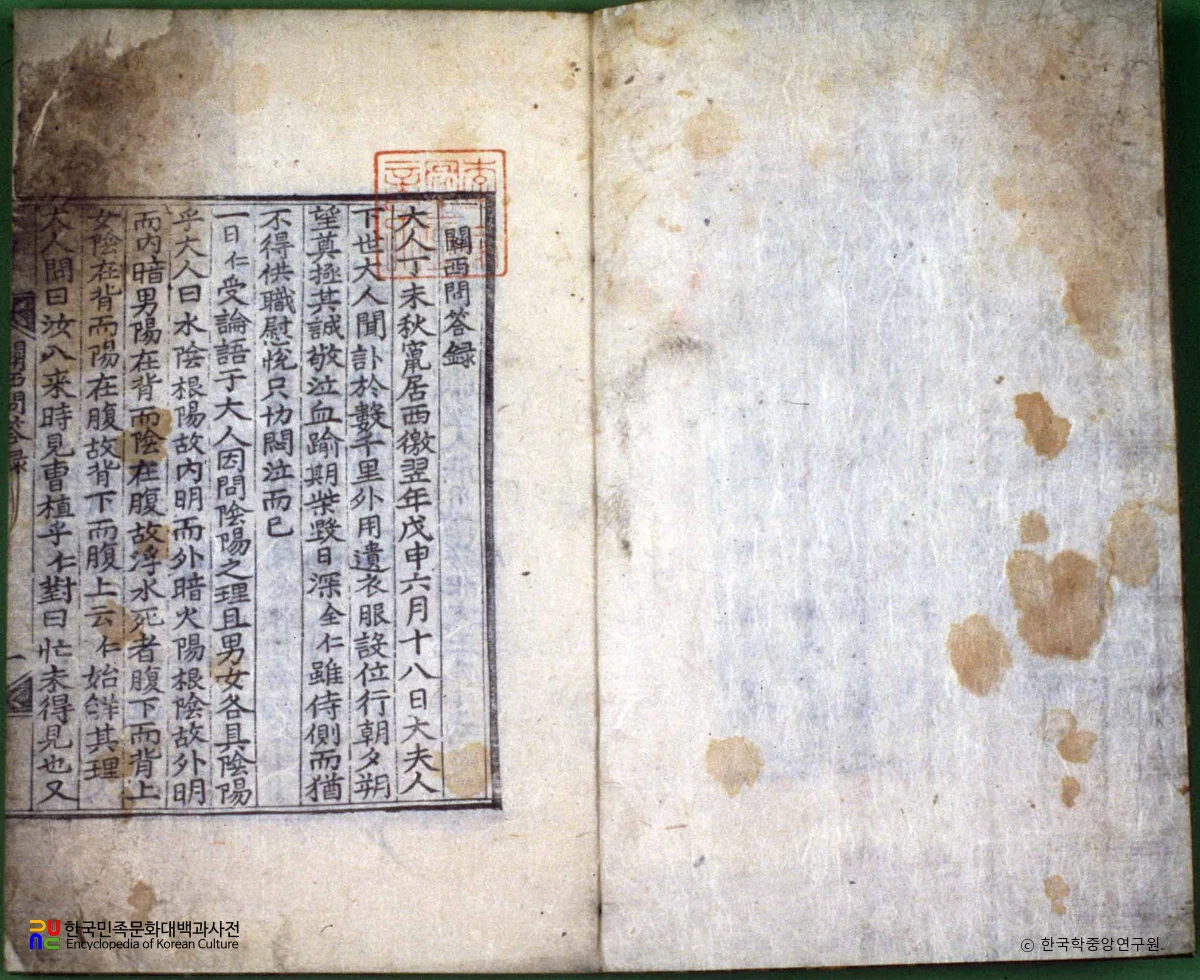 關西問答録
大人丁未秋竄居西徼翌年戊申六月十八日大夫人
下世大人聞訃於數千里外用遺衣服設位行朝夕朔
望奠極其誠敬泣血踰期柴毀日深全仁雖侍側而猶
不得供職慰悅只切悶泣而已
一日仁受論語于大人因問陰陽之理且男女各具陰陽
乎大人曰水陰根陽故內明而外暗火陽根陰故外明
而內暗男陽在背而陰在腹故浮水死者腹下而背上
女陰在背而陽在腹故背下而腹上云仁始詳其理
大人問曰汝入來時見曹植乎仁對曰忙未得見也又
關西問答录
一
한국민족문화대백과사전
Encyclopedia of Korean Culture
ⓒ 한국학중앙연구원